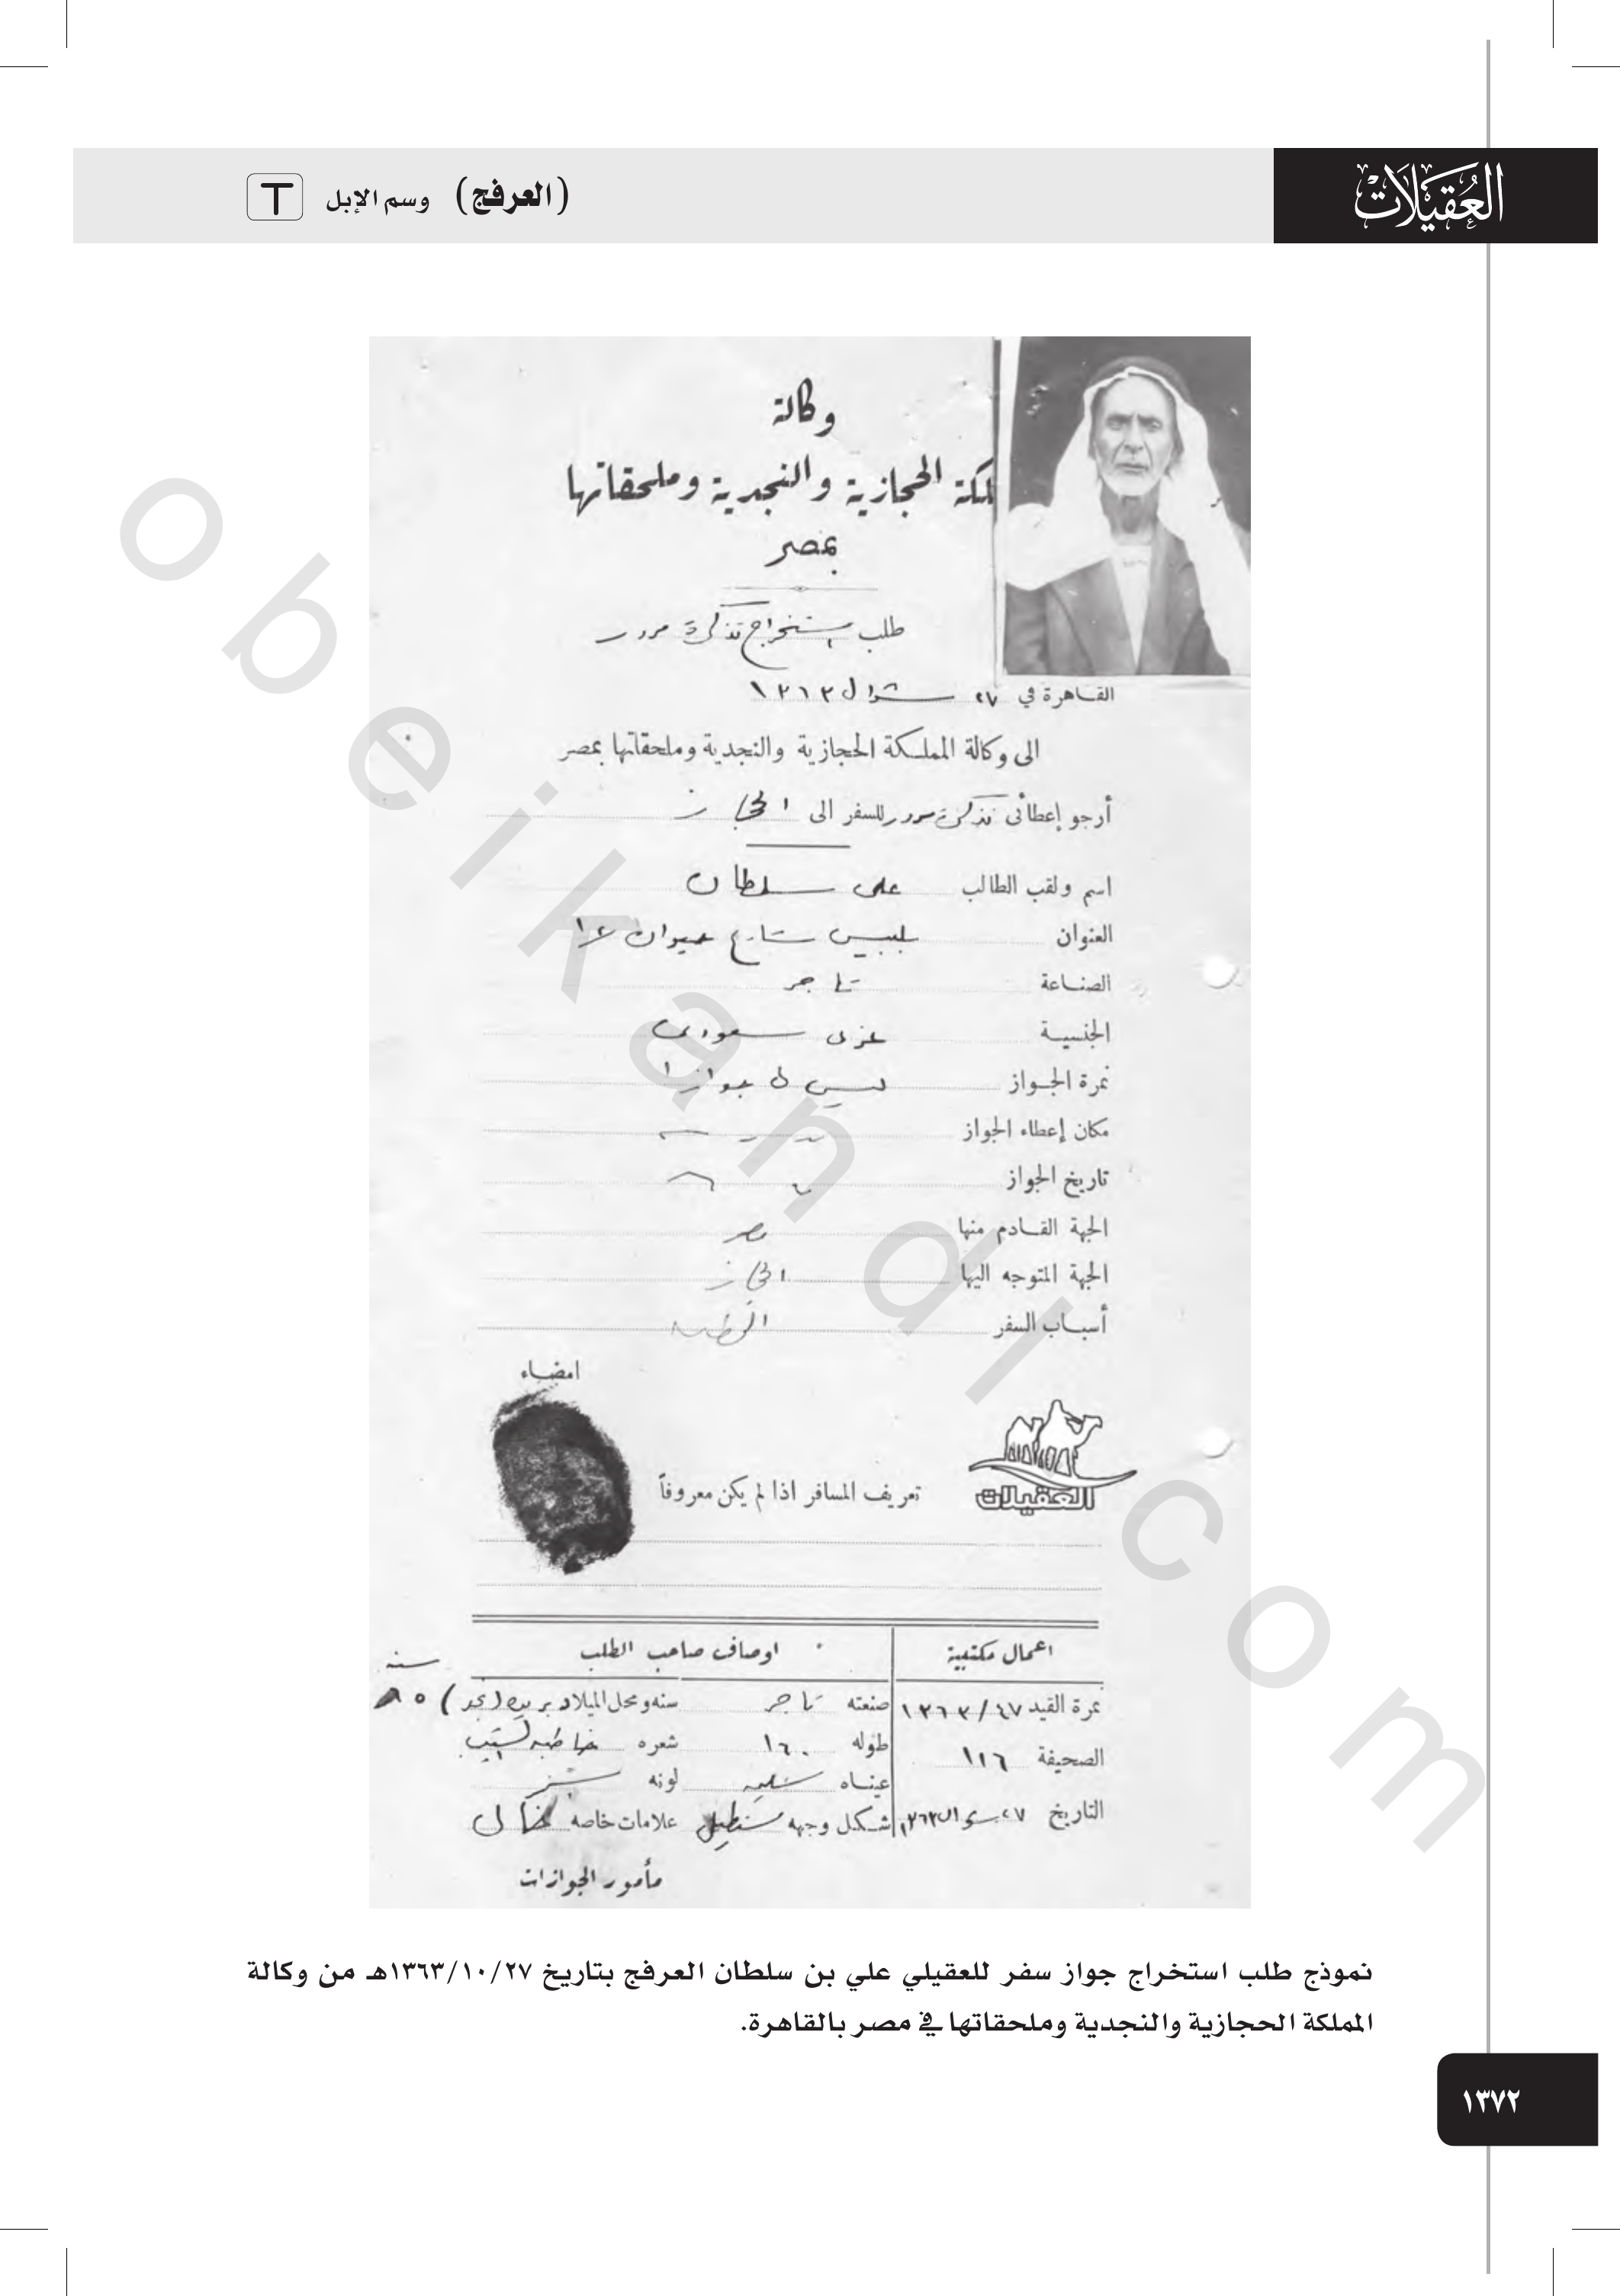 العقيلات
(العرفج) وسم الإبل T
وكالة
لكة الحجازية والنجدية وملحقاتها
بمصر
طلب استخراج تذكرة مرور
القاهرة في ٢٧ شوال ١٣٦٣
الى وكالة المملكة الحجازية والنجدية وملحقاتها بمصر
أرجو إعطائى تذكرة مرور للسفر الى الحجاز
اسم ولقب الطالب على سلطان
العنوان بلبيس شارع
الصناعة تاجر
الجنسية سعودى
نمرة الجواز ليس لى جواز
مكان إعطاء الجواز
تاريخ الجواز
الجهة القادم منها مصر
الجهة المتوجه اليها الحجاز
أسباب السفر
امضاء
العقيلات
تعريف المسافر اذا لم يكن معروفاً
اعمال مكتبية
اوصاف صاحب الطلب
نمرة القيد ٤٧ / ١٣٦٣ صنعته تاجر سنه ومحل الميلاد بريده (نجد) ٨٥ سنه
الصحيفة ١١٦ طوله ١٦٠ شعره
عيناه لونه
التاريخ ٢٧ شوال ١٣٦٣ شكل وجهه مستطيل علامات خاصه
مأمور الجوازات
نموذج طلب استخراج جواز سفر للعقيلي علي بن سلطان العرفج بتاريخ ١٣٦٣/١٠/٢٧هـ من وكالة
المملكة الحجازية والنجدية وملحقاتها في مصر بالقاهرة.
١٣٧٢
obeikandl.com